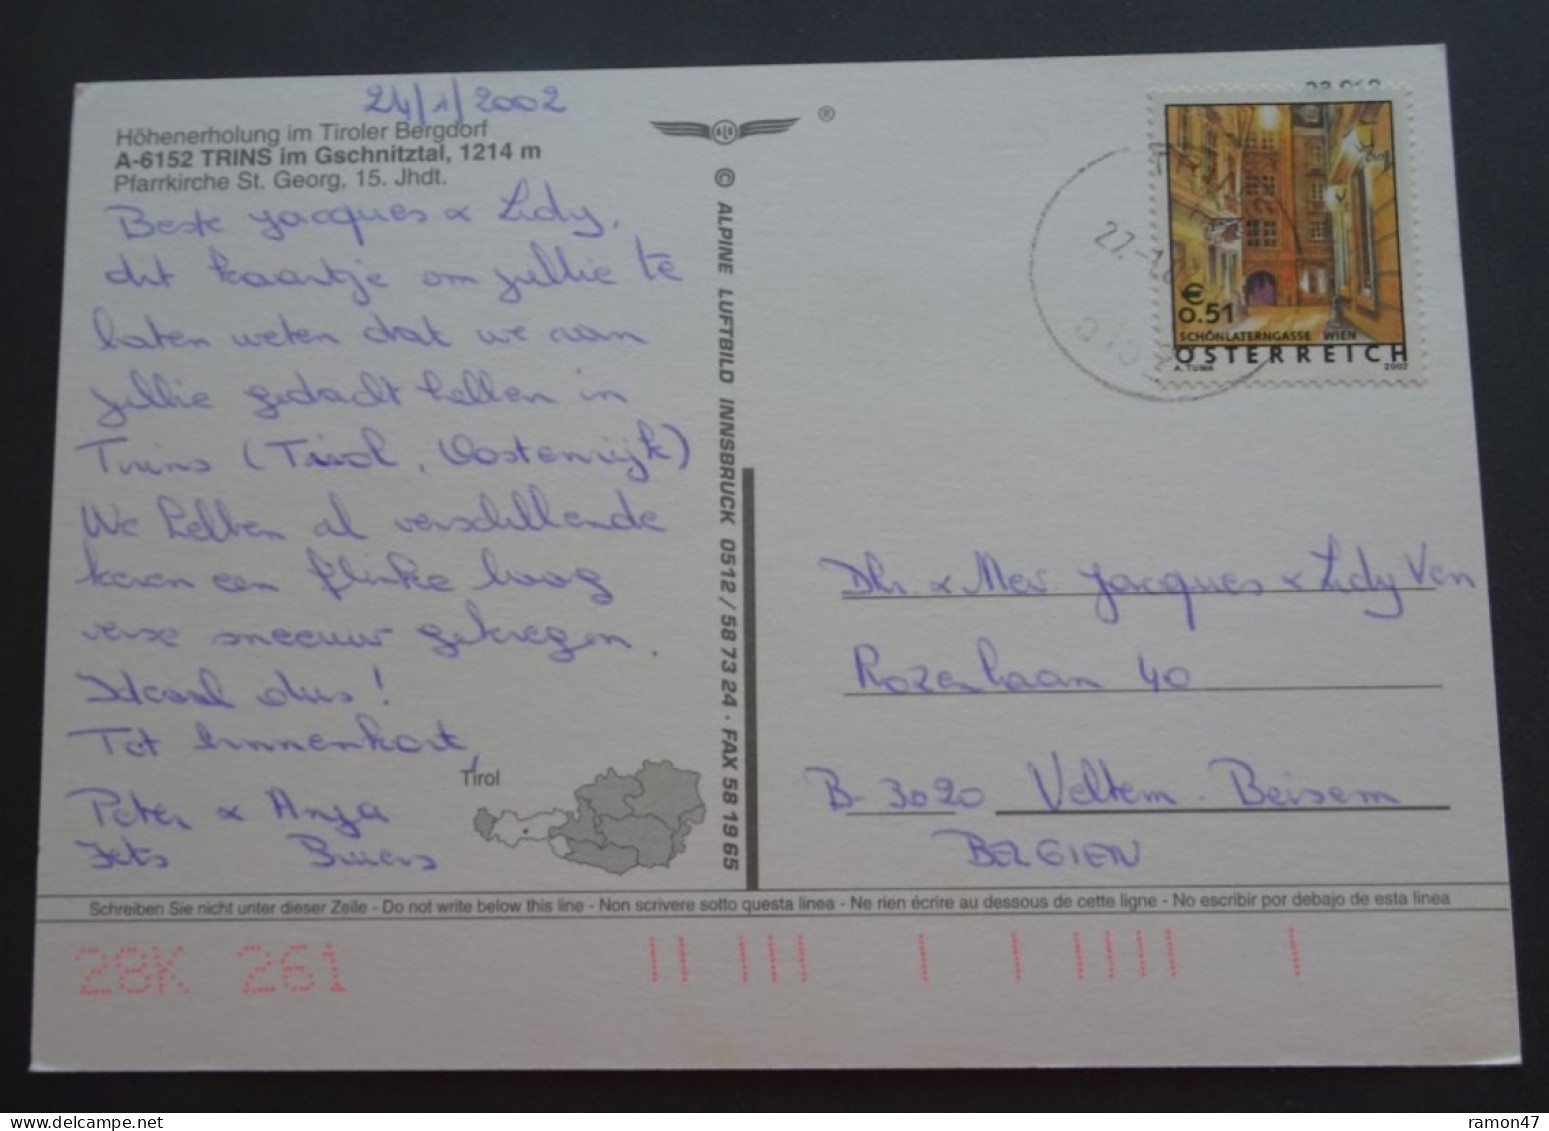 24/1/2002
Höhenerholung im Tiroler Bergdorf
A-6152 TRINS im Gschnitztal, 1214 m
Pfarrkirche St. Georg, 15. Jhdt.
Beste Jacques & Lidy,
dit kaartje om jullie te
laten weten dat we aan
jullie gedacht hebben in
Trins (Tirol, Oostenrijk)
We hebben al verschillende
keren een flinke laag
verse sneeuw gekregen.
Ideaal dus!
Tot binnenkort,
Peter & Anja
Tirol
®
© ALPINE LUFTBILD INNSBRUCK 0512/58 73 24 · FAX 58 19 65
27.
€
0.51
SCHÖNLATERNGASSE WIEN
ÖSTERREICH
A. TUMA 2002
Dhr. & Mev. Jacques & Lidy Ven
Rozenlaan 40
B-3020 Veltem-Beisem
BELGIEN
Schreiben Sie nicht unter dieser Zeile - Do not write below this line - Non scrivere sotto questa linea - Ne rien écrire au dessous de cette ligne - No escribir por debajo de esta linea
28K 261
ramon47